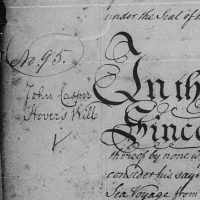 under the Seal of
No. 95.
John Casper
Hover's Will
In th
Since
thereof by none
consider his say
Sea Voyage from